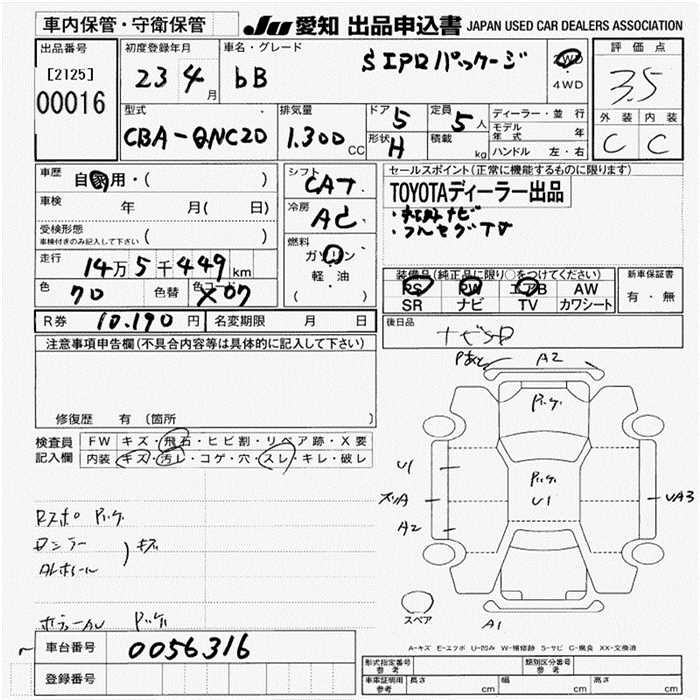 車内保管・守衛保管
JU 愛知 出品申込書 JAPAN USED CAR DEALERS ASSOCIATION
出品番号
[2125]
00016
初度登録年月
23 4月
車名・グレード
bB
S エアロパッケージ
2WD
4WD
評価点
3.5
外装 内装
C C
型式
CBA-QNC20
排気量
1.300 CC
ドア 5
形状 H
定員 5人
積載 kg
ディーラー・並行
モデル年式 年
ハンドル 左・右
車歴
自家用・( )
車検 年 月( 日)
受検形態
車検付きのみ記入して下さい ( )
走行
14万5千449km
色
70
色替
色コード
X07
シフト
CAT
冷房
AC
燃料
ガソリン
軽・油
( )
セールスポイント(正常に機能するものに限ります)
TOYOTAディーラー出品
・ナビ
・フルセグTV
装備品(純正品に限り○をつけてください)
PS PW エアB AW
SR ナビ TV カワシート
新車保証書
有・無
R券 10.190円
名変期限 月 日
後日品
注意事項申告欄(不具合内容等は具体的に記入して下さい)
修復歴 有 〔箇所 〕
検査員
記入欄
FW キズ・飛石・ヒビ割・リペア跡・X要
内装 キズ・汚レ・コゲ・穴・スレ・キレ・破レ
A2
U1
U1
A2
UA3
A1
スペア
キズ
A-キズ E-エクボ U-凹み W-補修跡 S-サビ C-腐食 XX-交換済
車台番号 0056316
登録番号
形式指定番号
参考
類別区分番号
参考
車庫証明用
参考
長さ cm
幅 cm
高さ cm